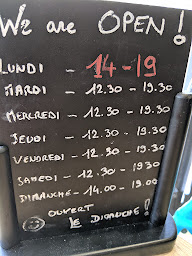 We are OPEN !
LUNDI - 14-19
MARDI - 12.30 - 19.30
MERCREDI - 12.30 - 19.30
JEUDI - 12.30 - 19.30
VENDREDI - 12.30 - 19.30
SAMEDI - 12.30 - 19.30
DIMANCHE - 14.00 - 19.00
OUVERT
LE DIMANCHE !